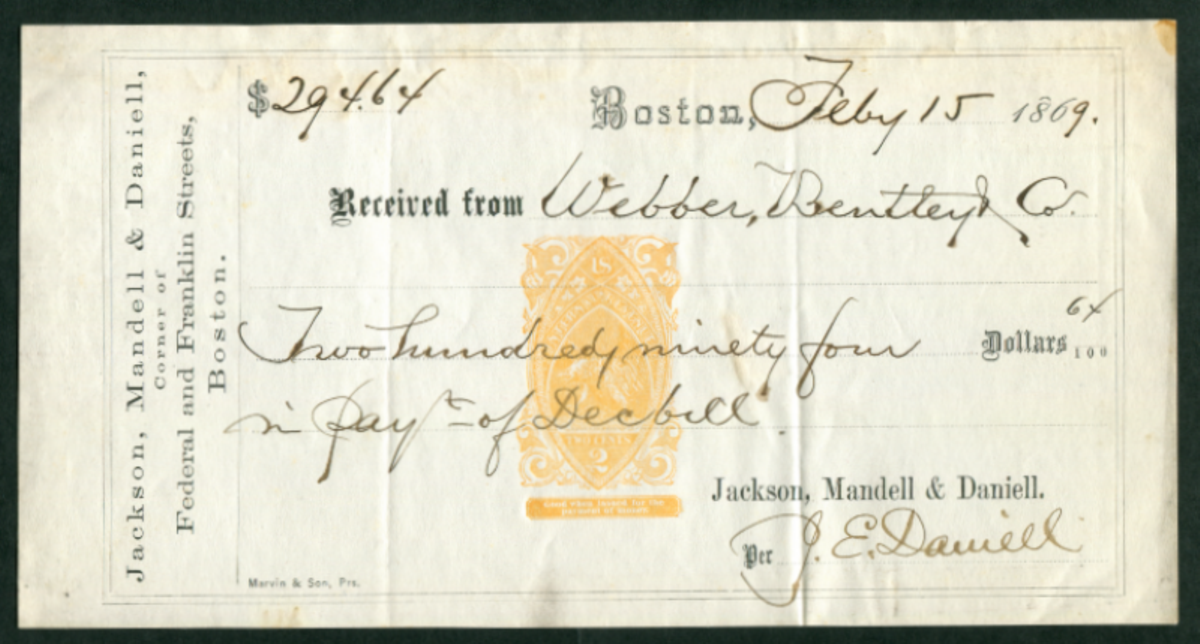 Jackson, Mandell & Daniell,
Corner of
Federal and Franklin Streets,
Boston.
$294.64
Boston, Feby 15 1869.
Received from Webber, Bentley & Co.
Two hundred ninety four Dollars 64/100
in Payt of Dec bill
US
INTERNAL REVENUE
TWO CENTS
2
Jackson, Mandell & Daniell.
Per J. E. Daniell
Marvin & Son, Prs.